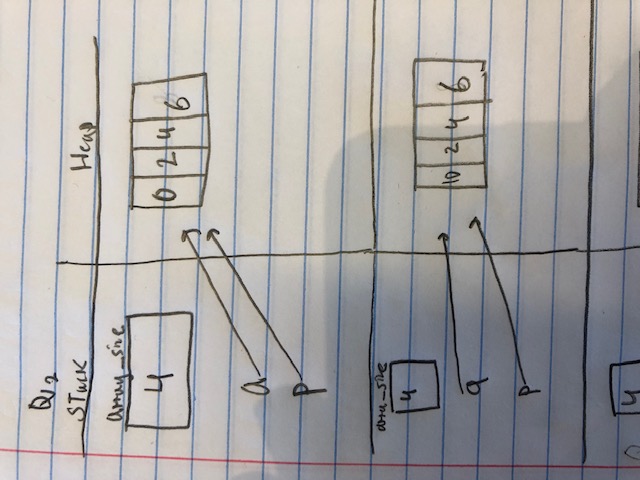 Q2
Stack Heap
array_size
4
0 2 4 6
a
p
4
10 2 4 6
a
p
4